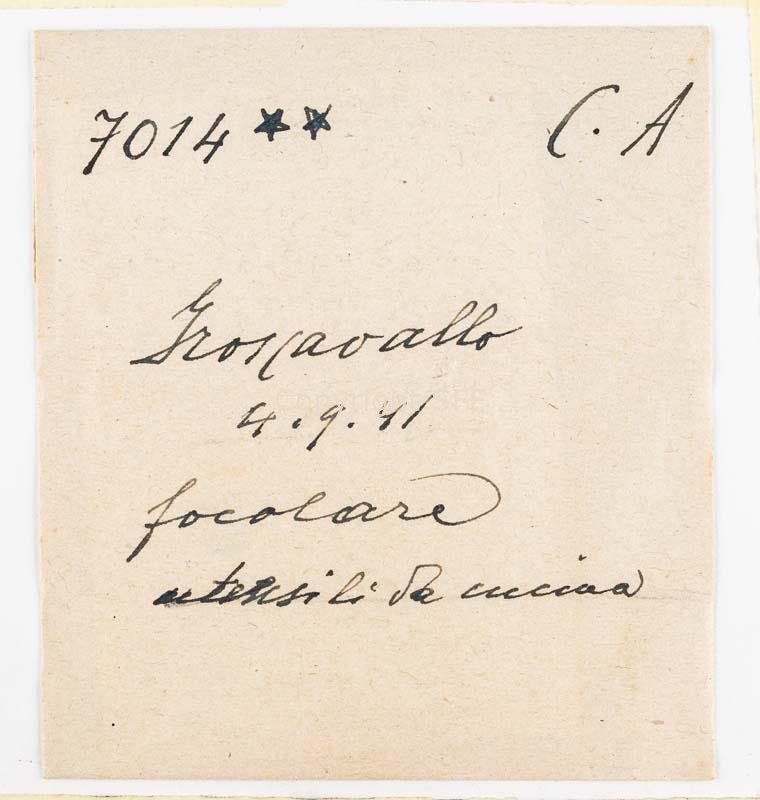 7014 ★★ C. A
Groscavallo
4.9.41
focolare
utensili da cucina